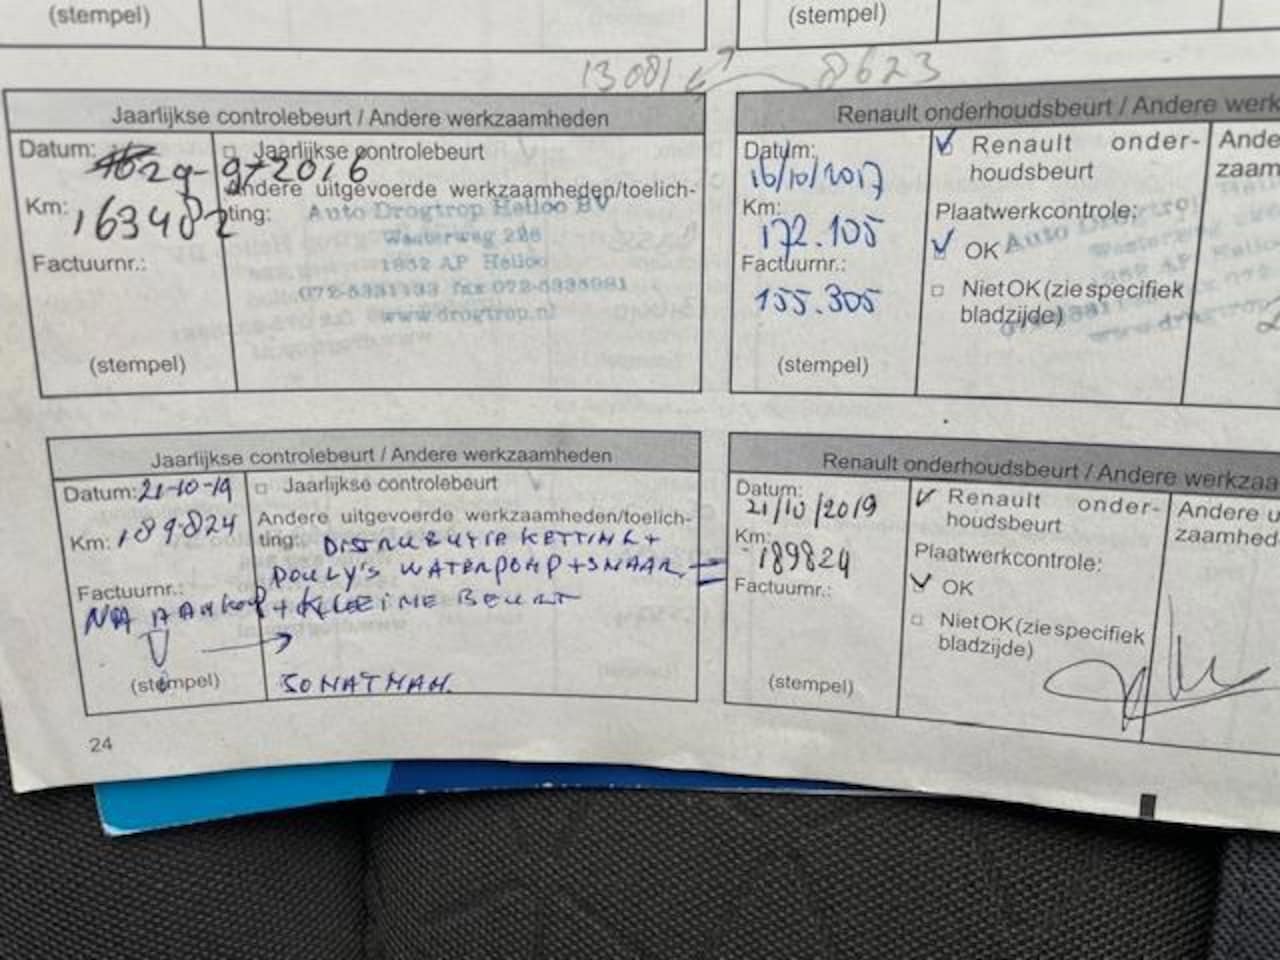 (stempel)
(stempel)
13081
8623
Jaarlijkse controlebeurt / Andere werkzaamheden
Datum: 29-9-2016
Jaarlijkse controlebeurt
Km: 163482
Andere uitgevoerde werkzaamheden/toelich-
ting: Auto Drogtrop Heiloo BV
Westerweg 226
1852 AP Heiloo
Factuurnr.:
www.drogtrop.nl
(stempel)
Renault onderhoudsbeurt / Andere werk
Datum:
16/10/2017
Renault onder-
houdsbeurt
Ande
zaam
Km:
172.105
Plaatwerkcontrole:
OK
Factuurnr.:
155.305
Niet OK (zie specifiek
bladzijde)
(stempel)
Jaarlijkse controlebeurt / Andere werkzaamheden
Datum: 21-10-19
Jaarlijkse controlebeurt
Km: 189824
Andere uitgevoerde werkzaamheden/toelich-
ting: DISTRIBUTIE KETTING +
POULY'S WATERPOMP + SNAAR
Factuurnr.:
NA AANKOOP + KLEINE BEURT
(stempel)
JONATHAN
Renault onderhoudsbeurt / Andere werkzaa
Datum:
21/10/2019
Renault onder-
houdsbeurt
Andere u
zaamhed
Km:
189824
Plaatwerkcontrole:
OK
Factuurnr.:
Niet OK (zie specifiek
bladzijde)
(stempel)
24